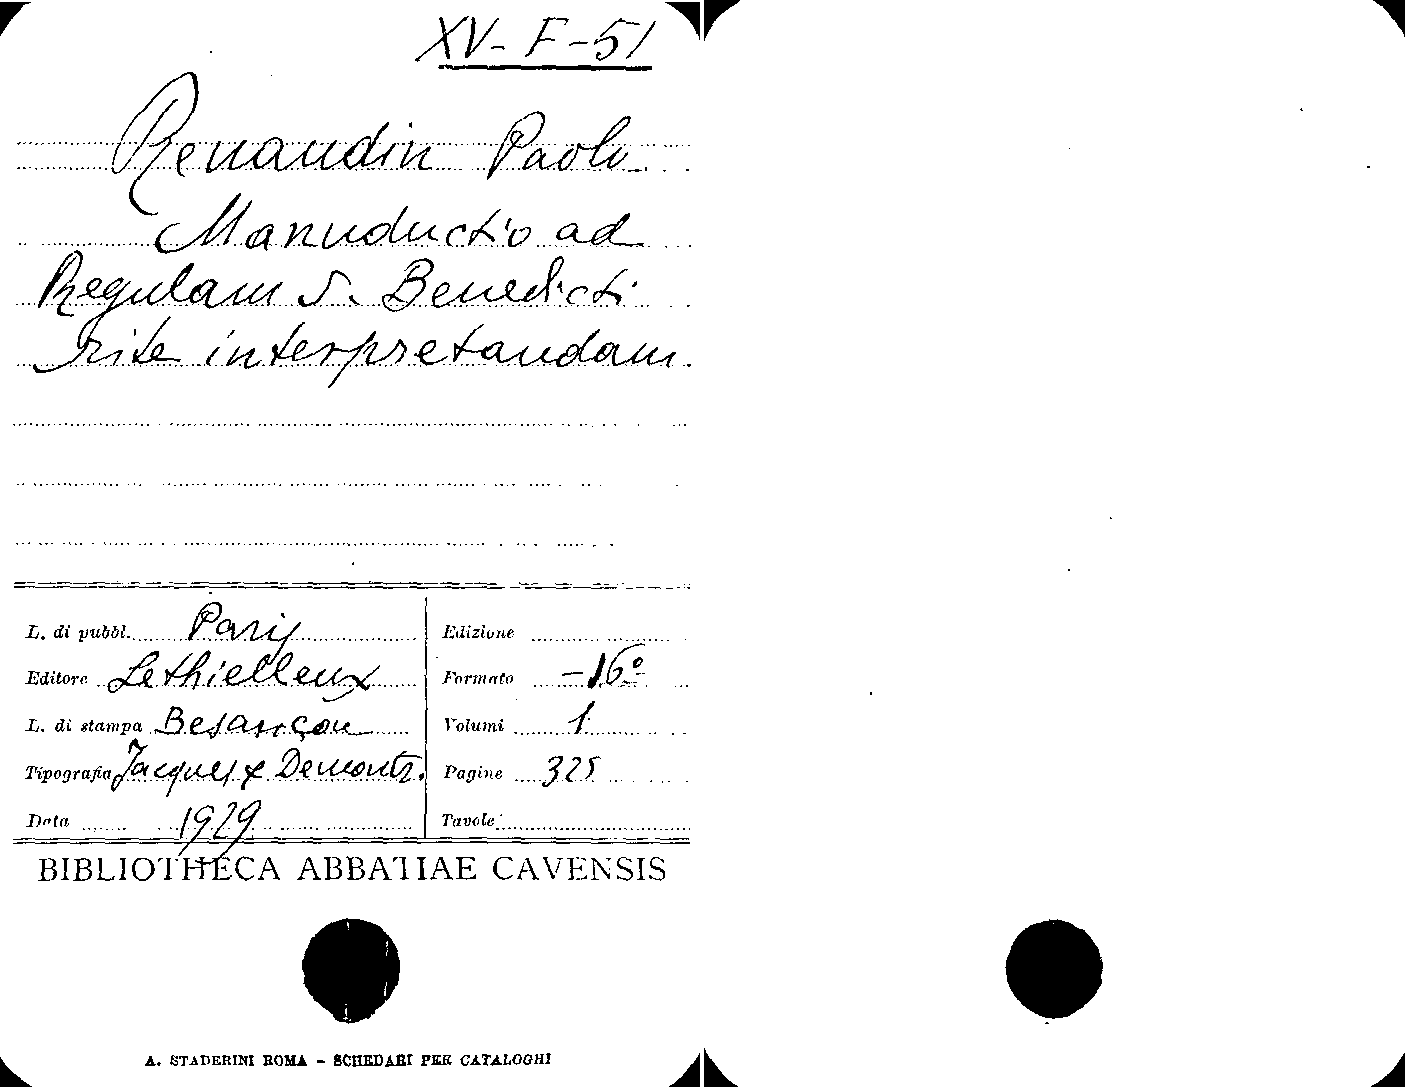 XV-F-51
Renaudin Paolo
Manuductio ad
Regulam S. Benedicti
rite interpretandam.
L. di pubbl. Paris
Editore Lethielleux
L. di stampa Besançon
Tipografia Jacques & Demontr.
Data 1929
Edizione
Formato -16º
Volumi 1
Pagine 325
Tavole
BIBLIOTHECA ABBATIAE CAVENSIS
A. STADERINI ROMA - SCHEDARI PER CATALOGHI